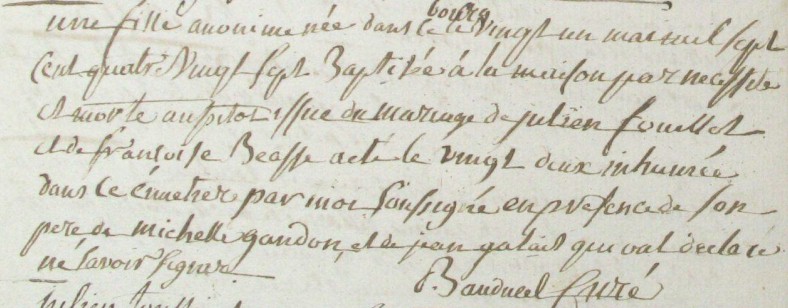 bourg
une fille anonime née dans ce le vingt un mai mil sept
cent quatre vingt sept Baptisée à la maison par necessité
et morte aussitot issue du mariage de julien fouillet
et de francoise Beasse a eté le vingt deux inhumée
dans ce cimetier par moi soussigné en presence de son
pere de michelle gandon, et de jean galais qui ont declaré
ne savoir signer
curé
julien